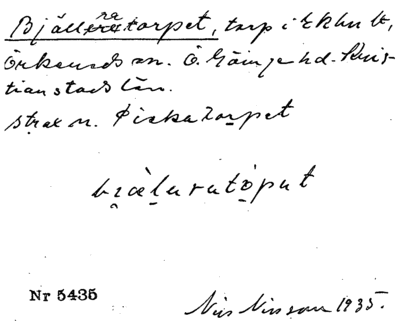 Bjällratorpet, torp i Ekhult,
Örkeneds sn. Ö. Göinge hd. Kris-
tianstads län.
strax n. Piskatorpet
bɪæ̀l̥aratòput
Nr 5435
Nils Nilsson 1935.